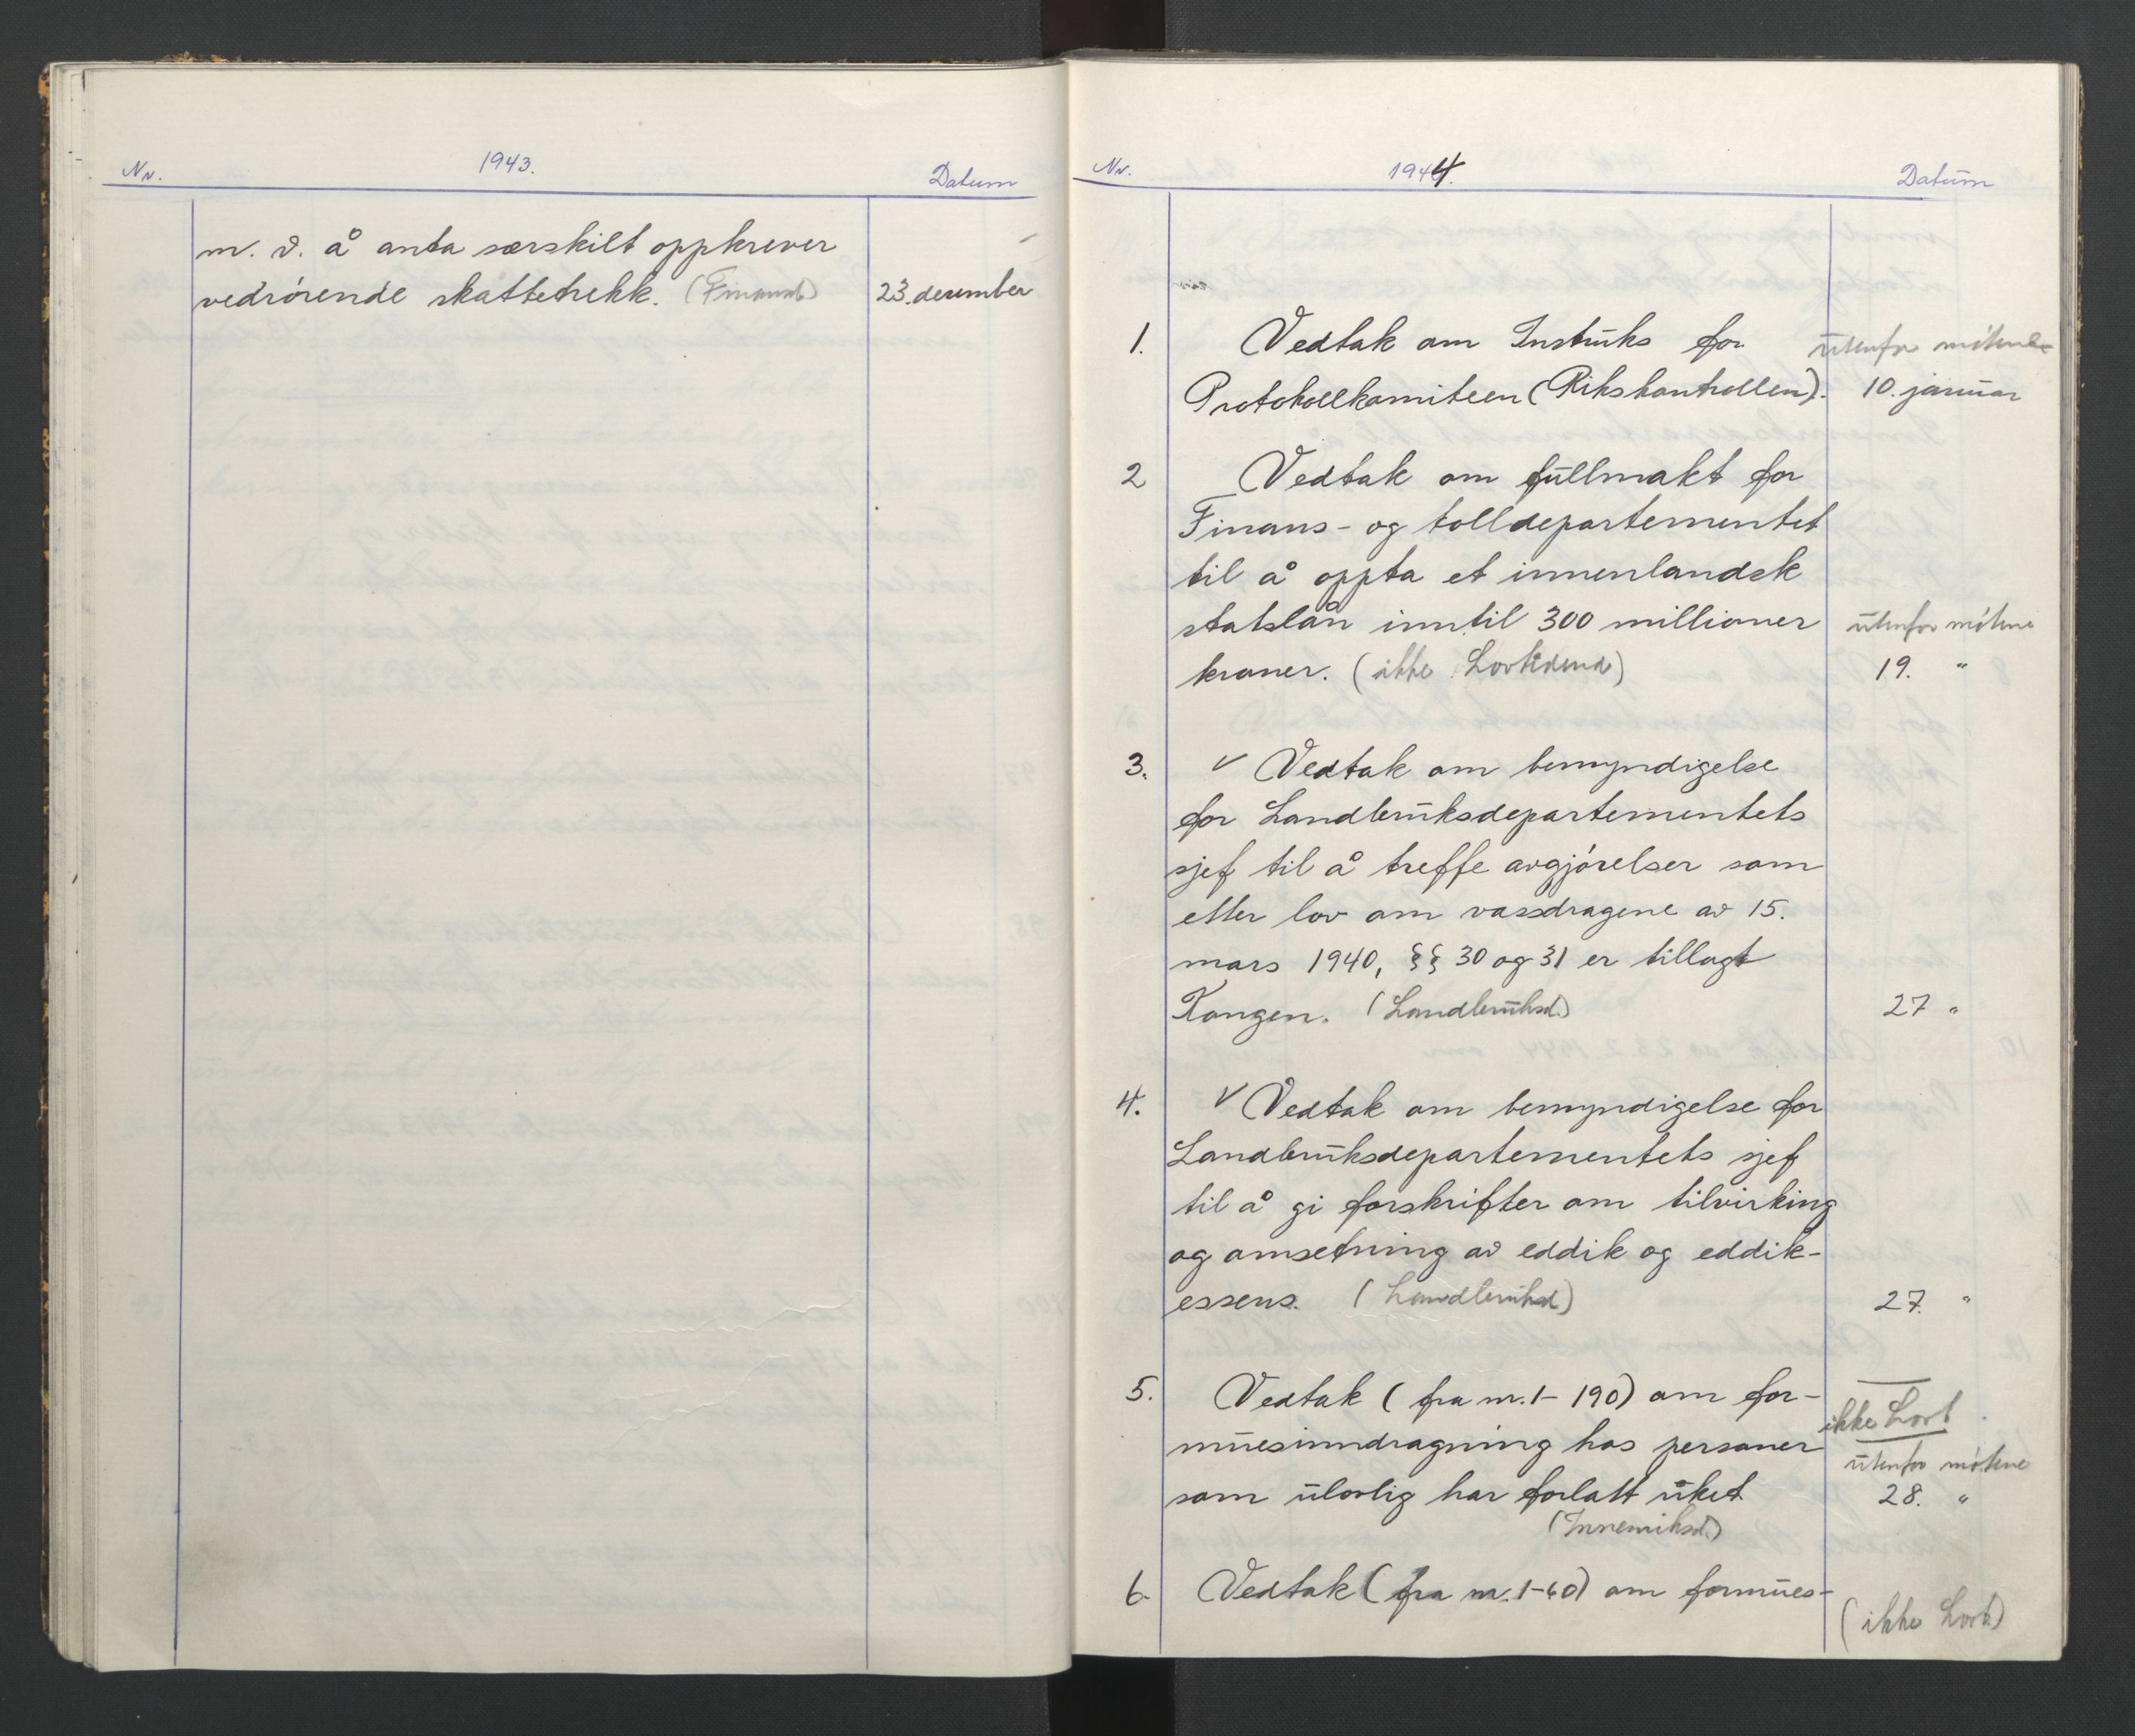 Nr. 1943. Datum
m. v. å anta særskilt oppkrever
vedrörende skattetrekk. (Finansd) 23. desember
Nr. 1944. Datum
1. Vedtak om Instruks for utenfor mötene
Protokollkomiteen (Rikskontrollen). 10. januar
2 Vedtak om fullmakt for
Finans- og tolldepartementet
til å oppta et innenlandsk
statslån inntil 300 millioner utenfor mötene
kroner. (ikke Lovtidend) 19. "
3. √ Vedtak om bemyndigelse
for Landbruksdepartementets
sjef til å treffe avgjörelser som
etter lov om vassdragene av 15.
mars 1940, §§ 30 og 31 er tillagt
Kongen. (Landbruksd.) 27 "
4. √ Vedtak om bemyndigelse for
Landbruksdepartementets sjef
til å gi forskrifter om tilvirking
og omsetning av eddik og eddik-
essens. (Landbruksd) 27. "
5. Vedtak (fra nr. 1-190) om for-
ikke Lovt
muesinndragning hos personer
utenfor mötene
som ulovlig har forlatt riket 28. "
(Innenriksd.)
6. Vedtak (fra nr. 1-60) om formues-
(ikke Lovt)